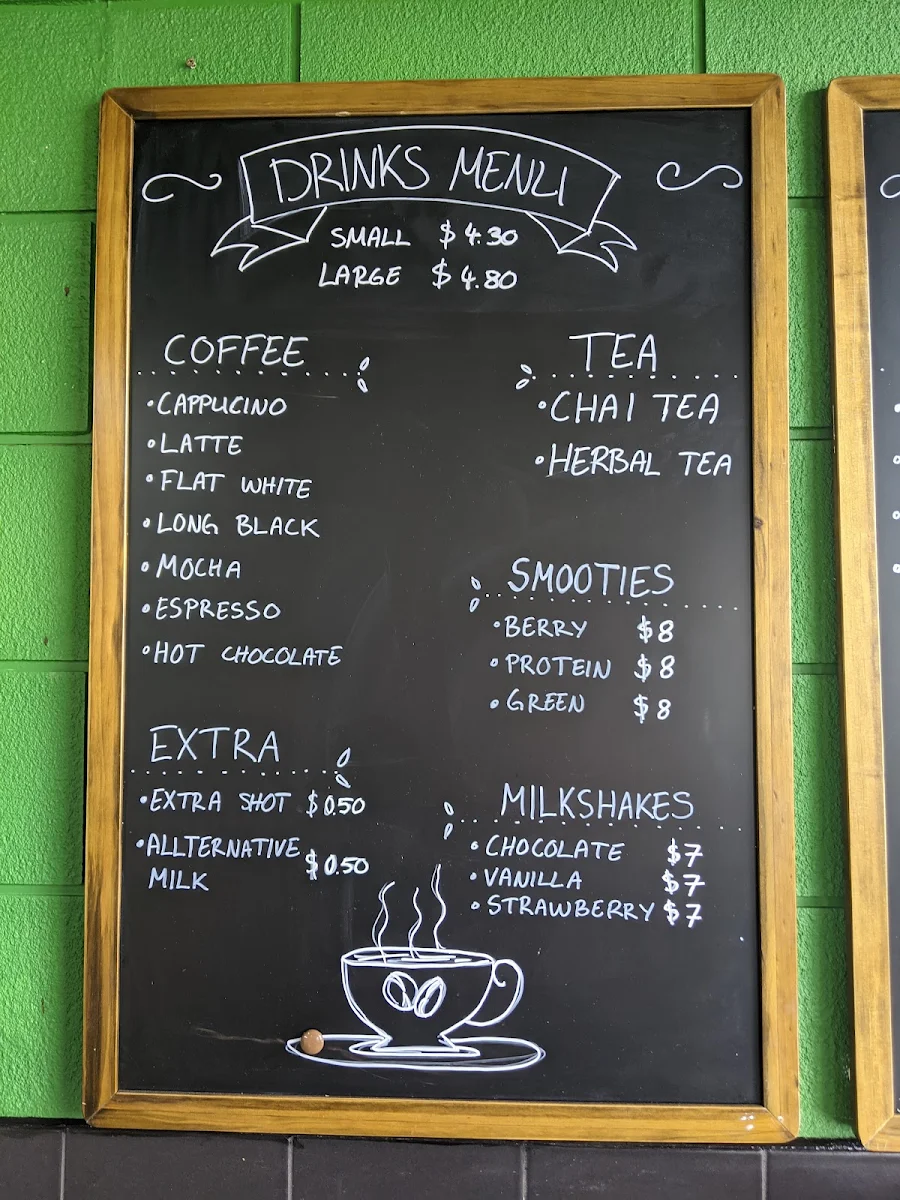 DRINKS MENU
SMALL $4.30
LARGE $4.80
COFFEE
•CAPPUCINO
•LATTE
•FLAT WHITE
•LONG BLACK
•MOCHA
•ESPRESSO
•HOT CHOCOLATE
EXTRA
•EXTRA SHOT $0.50
•ALLTERNATIVE MILK $0.50
TEA
•CHAI TEA
•HERBAL TEA
SMOOTIES
•BERRY $8
•PROTEIN $8
•GREEN $8
MILKSHAKES
•CHOCOLATE $7
•VANILLA $7
•STRAWBERRY $7